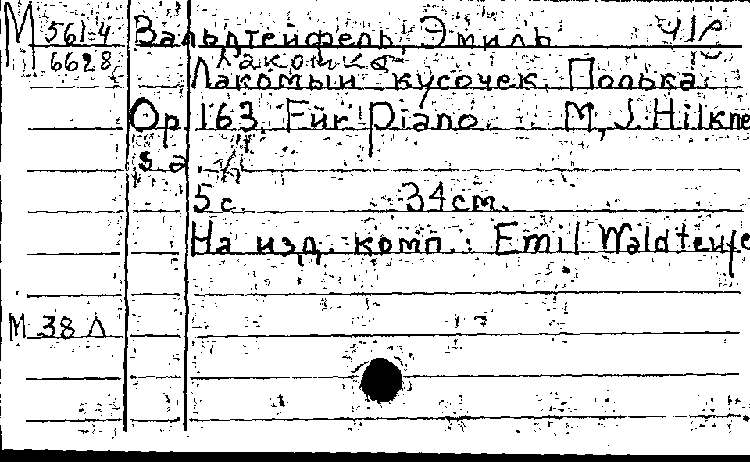 М 561-4 Вальдтейфель, Эмиль
6628 Лакомка
Лакомый кусочек. Полька.
Op. 163. Für Piano. M., J. Hilkne
s. a.
5 с. 34 см.
На изд. комп.: Emil Waldteufe
М 38 Л